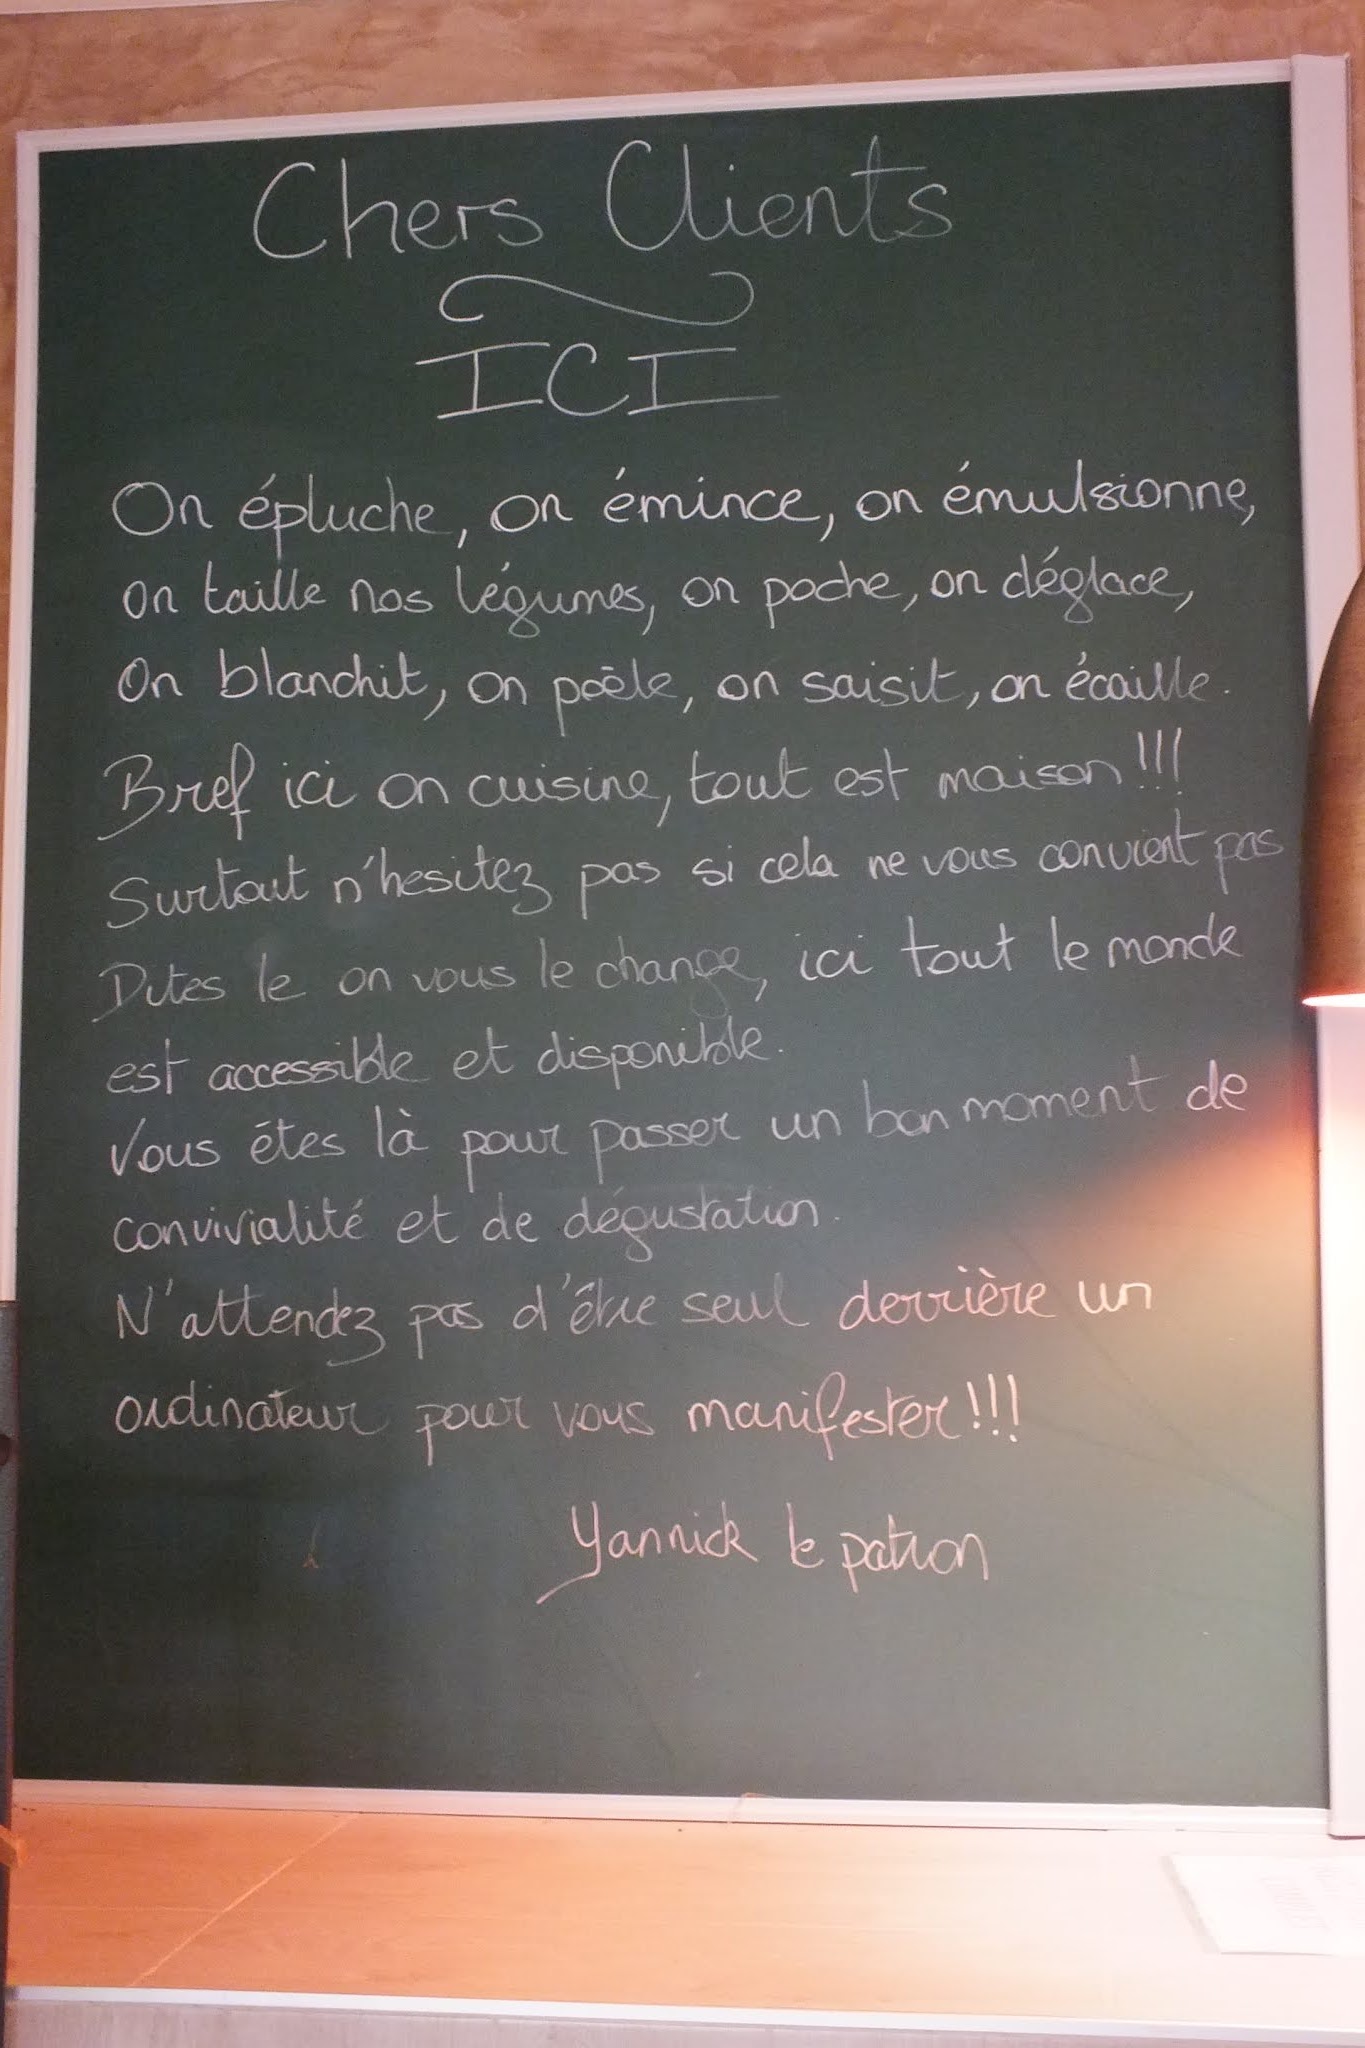 Chers Clients
ICI
On épluche, on émince, on émulsionne,
on taille nos légumes, on poche, on déglace,
On blanchit, on poêle, on saisit, on écaille.
Bref ici on cuisine, tout est maison!!!
Surtout n'hesitez pas si cela ne vous convient pas
Dites le on vous le change, ici tout le monde
est accessible et disponible.
Vous êtes là pour passer un bon moment de
convivialité et de dégustation.
N'attendez pas d'être seul derrière un
ordinateur pour vous manifester!!!
Yannick le patron